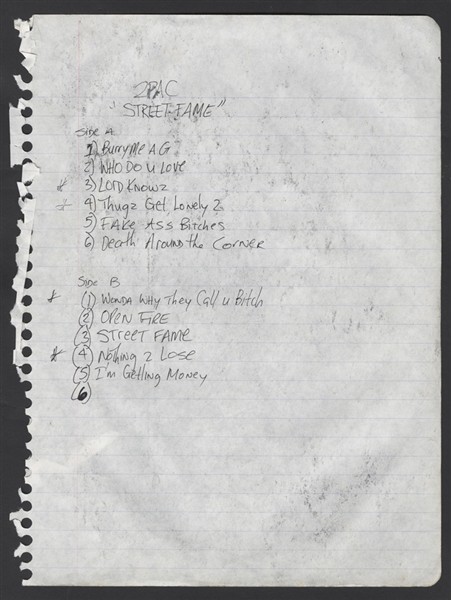 2PAC
"STREET FAME"
Side A
1) Bury Me A G
2) WHO DO U LOVE
* 3) LORD KNOWZ
* 4) Thugz Get Lonely 2
5) FAKE ASS BITCHES
6) Death Around the CORNER
Side B
* (1) WONDA Why They Call U Bitch
(2) OPEN FIRE
(3) STREET FAME
* (4) Nothing 2 Lose
(5) I'm Getting Money
(6)